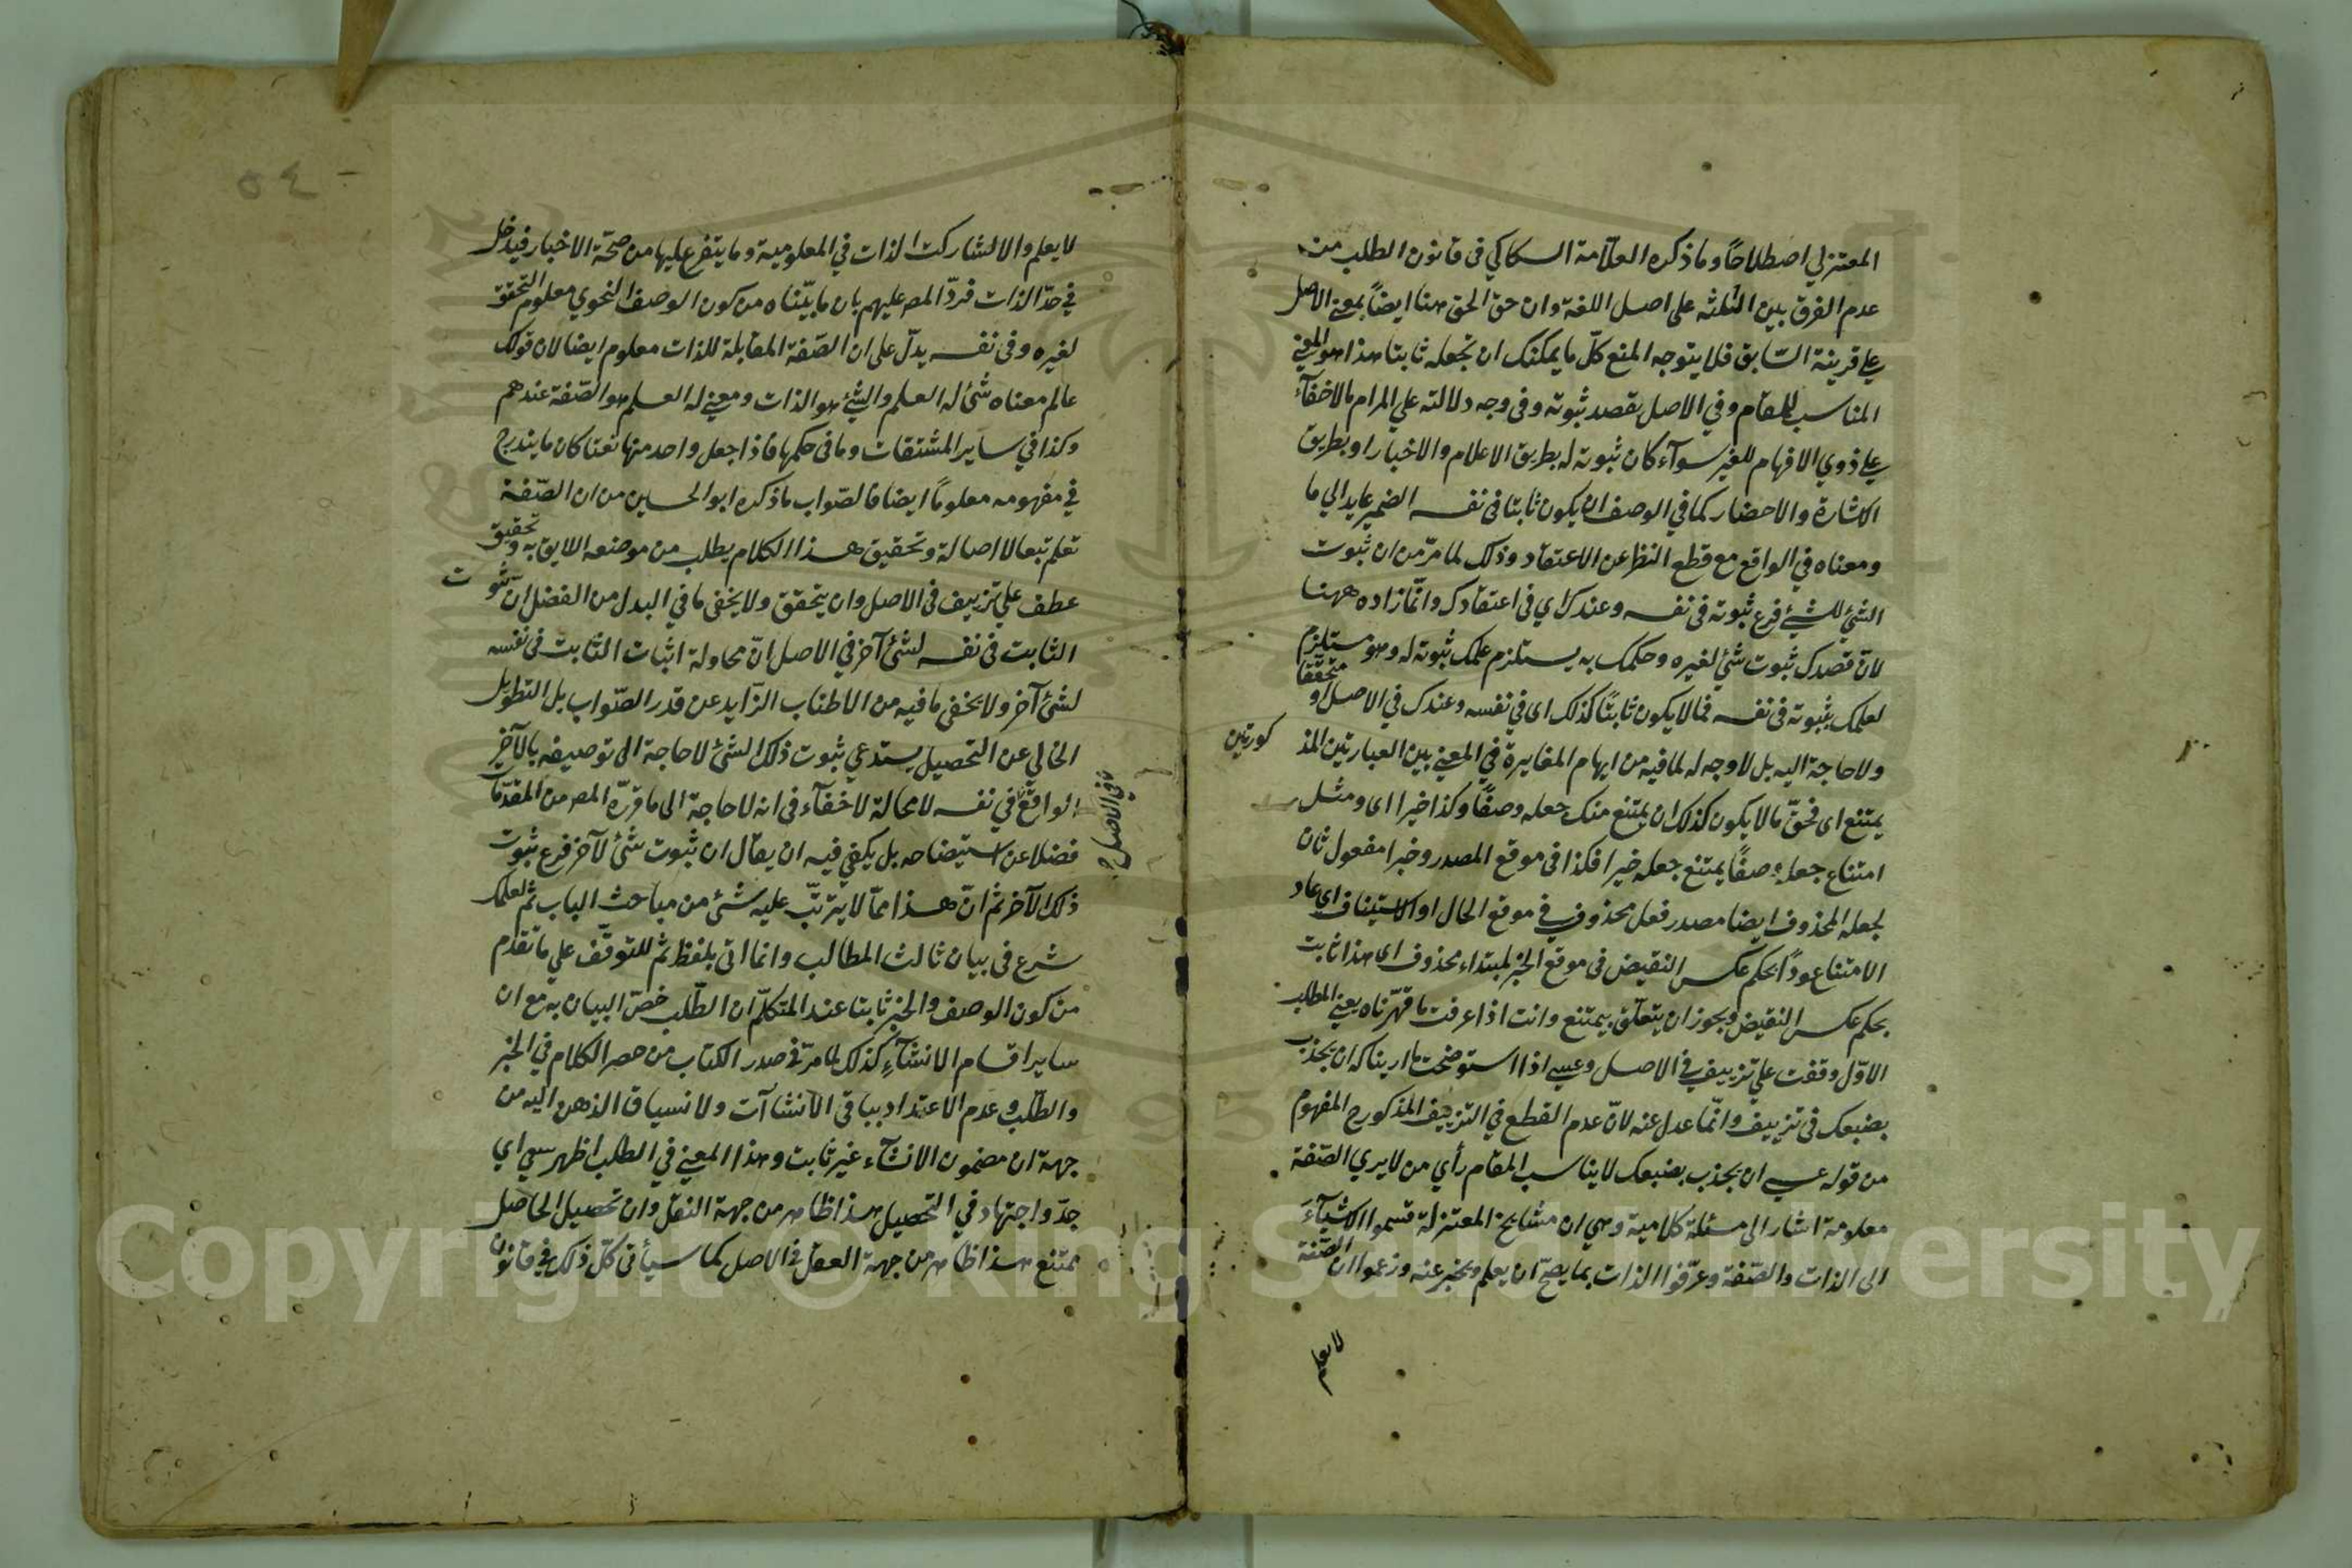 المعتزلي اصطلاحًا وما ذكره العلّامة السكاكي فى قانون الطلب من
عدم الفرق بين الثلثه على اصل اللغة وان حق الحق هنا ايضًا بمعنى الاصل
على قرينة السّابق فلا يتوجه المنع كلّ ما يمكنك ان تجعله ثابتا هذا هو المعنى
المناسب للمقام وفي الاصل بقصد ثبوته وفى وجه دلالته علي المرام مالاخفاء
علي ذوي الافهام للغير سوآء كان ثبوته له بطريق الاعلام والاخبار او بطريق
الاشارة والاحضار كما في الوصف ان يكون ثابتا فى نفسه الضمير عايد الي ما
ومعناه في الواقع مع قطع النظر عن الاعتقاد وذلك لما مرّ من ان ثبوت
الشئ للشئ فرع ثبوته فى نفسه وعندك اي فى اعتقادك وانّما زاده ههنا
لانّ قصدك ثبوت شئ لغيره وحكمك به يستلزم علمك ثبوته له وهو مستلزم
لعلمك بثبوته فى نفسه فما لا يكون ثابتًا كذلك اى في نفسه وعندك في الاصل او متحققا
ولا حاجة اليه بل لا وجه له لما فيه من ايهام المغايرة في المعنى بين العبارتين المذ كورتين
يمتنع اى فحقّ ما لا يكون كذلك ان يمتنع منك جعله وصفًا وكذا خبرا اى ومثل
امتناع جعله وصفًا يمتنع جعله خبرا فكذا فى موقع المصدر وخبرا مفعول ثان
لجعله المحذوف ايضا مصدر فعل محذوف في موقع الحال او الاستيناف اى عاد
الامتناع عودًا بحكم عكس النقيض فى موقع الخبر لمبتداء محذوف اى هذا ثابت
بحكم عكس النقيض ويجوز ان يتعلّق بيمتنع وانت اذا عرفت ما قرّرناه يعني المطلب
الاوّل وقفت علي تزييف في الاصل وعسى اذا استوضحت ما اريناكه ان يجذب
بضبعك فى تزييف وانّما عدل عنه لانّ عدم القطع في التزييف المذكور ح المفهوم
من قوله عسى ان يجذب بضبعك لا يناسب المقام رأي من لا يري الصّفة
معلومة اشار الى مسئلة كلامية وهي ان مشايخ المعتزلة قسموا الاشيآء
الى الذات والصّفة وعرّفوا الذات بما يصحّ ان يعلم ويخبر عنه وزعموا ان الصّفة
لا يعلم
٥٤
لا يعلم والا لشاركت الذات في المعلومية وما يتفرع عليها من صحّة الاخبار فيدخل
في حدّ الذات فردّ المصـ عليهم بان ما بيّنّاه من كون الوصف النحوي معلوم التحقق
لغيره وفى نفسه يدلّ على ان الصّفة المقابلة للذات معلوم ايضا لان قولك
عالم معناه شئ له العلم والشئ هو الذات ومعني له العلم هو الصّفة عندهم
وكذا في ساير المشتقات وما فى حكمها فاذا جعل واحد منها نعتا كان ما يندرج
في مفهومه معلومًا ايضا فالصّواب ما ذكره ابو الحسين من ان الصّفة
تعلم تبعا لا اصالة وتحقيق هذا الكلام يطلب من موضعه اللايق به وتحقيق
عطف علي تزييف فى الاصل وان يتحقق ولا يخفى ما في البدل من الفضل انّ ثبوت
الثابت فى نفسه لشئ آخر في الاصل انّ محاولة اثبات الثابت فى نفسه
لشئ آخر ولا يخفى ما فيه من الاطناب الزّايد عن قدر الصّواب بل التطويل
الخالي عن التحصيل يستدعي ثبوت ذلك الشئ لا حاجة الى توصيفه بالآخر
وفى الاصل
الواقع في نفسه لا محالة لا خفآء فى انه لا حاجة الى ما قرّره المصـ من المقدّمات
فضلا عن استيضاحه بل يكفي فيه ان يقال ان ثبوت شئ لآخر فرع ثبوت
ذلك الآخر ثم انّ هذا ممّا لا يترتّب عليه شئ من مباحث الباب ثم لعلمك
شرع فى بيان ثالث المطالب وانما اتى بلفظ ثم للتوقّف علي ما تقدم
من كون الوصف والخبر ثابتا عند المتكلّم ان الطّلب خصّ البيان به مع ان
ساير اقسام الانشآء كذلك لما مرّ في صدر الكتاب من حصر الكلام في الخبر
والطّلب وعدم الاعتداد بباقى الانشاآت ولا نسياق الذهن اليه من
جهة ان مضمون الانشآء غير ثابت وهذا المعني في الطلب اظهر سعي اي
جدّ واجتهاد في التحصيل هذا ظاهر من جهة النقل وان تحصيل الحاصل
يمتنع هذا ظاهر من جهة العقل في الاصل كما سيأتى كلّ ذلك في قانون
Copyright © King Saud University